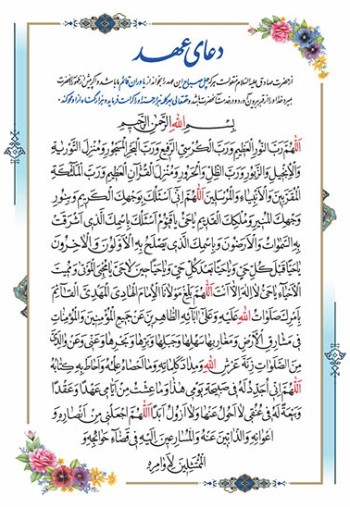 دعای عهد
از حضرت صادق علیه السلام منقولست هر که چهل صباح این عهد را بخواند از یاوران قائم ما باشد و اگر پیش از ظهور آنحضرت
بمیرد خدا او را از قبر بیرون آورد و در خدمت آنحضرت باشد و حقتعالی بهر کلمه هزار حسنه او را کرامت فرماید و هزار گناه از او محو کند
بسم الله الرحمن الرحیم
اللهم رب النور العظیم ورب الکرسی الرفیع ورب البحر المسجور ومنزل التوریة
والانجیل والزبور ورب الظل والحرور ومنزل القرآن العظیم ورب الملائکة
المقربین والانبیاء والمرسلین اللهم انی اسئلک بوجهک الکریم وبنور
وجهک المنیر وملکک القدیم یا حی یا قیوم اسئلک باسمک الذی اشرقت
به السموات والارضون وباسمک الذی یصلح به الاولون والاخرون
یا حیا قبل کل حی ویا حیا بعد کل حی ویا حیا حین لا حی یا محیی الموتی وممیت
الاحیاء یا حی لا اله الا انت اللهم بلغ مولانا الامام الهادی المهدی القائم
بامرک صلوات الله علیه وعلی ابائه الطاهرین عن جمیع المؤمنین والمؤمنات
فی مشارق الارض ومغاربها سهلها وجبلها وبرها وبحرها وعنی وعن والدی
من الصلوات زنة عرش الله ومداد کلماته وما احصاه علمه واحاط به کتابه
اللهم انی اجدد له فی صبیحة یومی هذا وما عشت من ایامی عهدا وعقدا
وبیعة له فی عنقی لا احول عنها ولا ازول ابدا اللهم اجعلنی من انصاره و
اعوانه والذابین عنه والمسارعین الیه فی قضاء حوائجه و
الممتثلین لاوامره